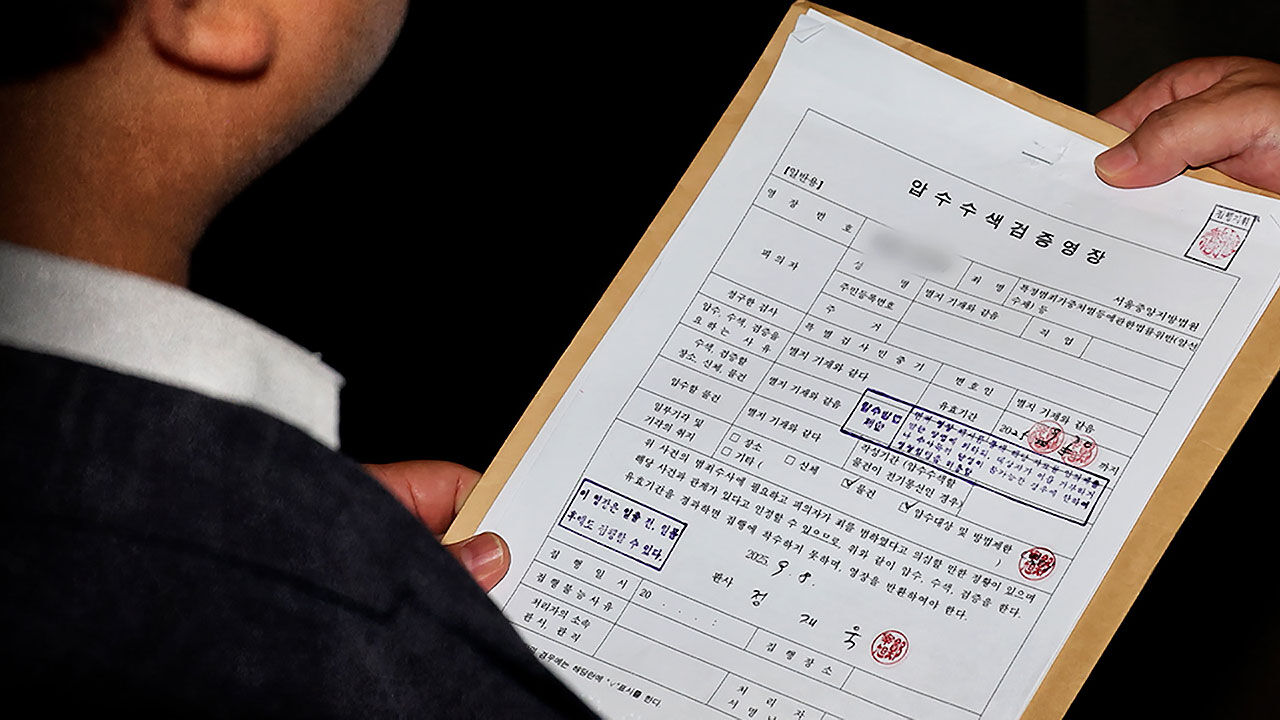 집행기한
압수수색검증영장
[일반용]
영장번호
서울중앙지방법원
피의자
성명
죄명
특정범죄가중처벌등에관한법률위반(알선
수재) 등
주민등록번호
별지 기재와 같음
직업
주거
청구한 검사
특별검사 민중기
변호인
별지 기재와 같음
압수, 수색, 검증을
요하는 사유
별지 기재와 같다
유효기간
까지
수색, 검증할
장소, 신체, 물건
별지 기재와 같음
압수할 물건
별지 기재와 같다
작성기간 (압수수색할
물건이 전기통신인 경우)
압수방법
제한
일부기각 및
기각의 취지
□ 장소
□ 신체
☑ 물건
□ 기타 (
☑ 압수대상 및 방법제한
)
위 사건의 범죄수사에 필요하고 피의자가 죄를 범하였다고 의심할 만한 정황이 있으며
해당 사건과 관계가 있다고 인정할 수 있으므로, 위와 같이 압수, 수색, 검증을 한다.
유효기간을 경과하면 집행에 착수하지 못하며, 영장을 반환하여야 한다.
이 영장은 일출 전, 일몰
후에도 집행할 수 있다.
2025. 9. 8.
판사 정재욱
집행일시
20 . . . :
집행장소
집행불능사유
처리자의 소속
관서, 관직
처리자